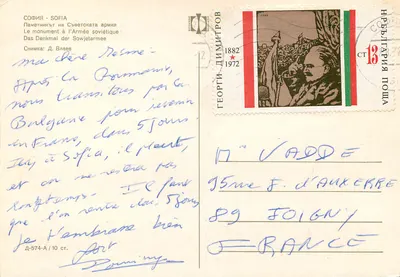 СОФИЯ - SOFIA
Паметникът на Съветската армия
Le monument à l'Armée soviétique
Das Denkmal der Sowjetarmee
Снимка: Д. Влаев
ma chère Mémé:
Après la Roumanie,
nous transitons par la
Bulgarie pour revenir
en France, dans 5 jours
Ici, à Sofia, il pleut,
et on ne restera pas
longtemps. Il faut
que l'on rentre dans 5 jours
Je t'embrasse bien
fort
Д-574-А / 10 ст.
ГЕОРГИ ДИМИТРОВ
1882
1972
НР БЪЛГАРИЯ ПОЩА
СТ 13
12
Mme VADDE
95 rue F. d'AUXERRE
89 JOIGNY
FRANCE